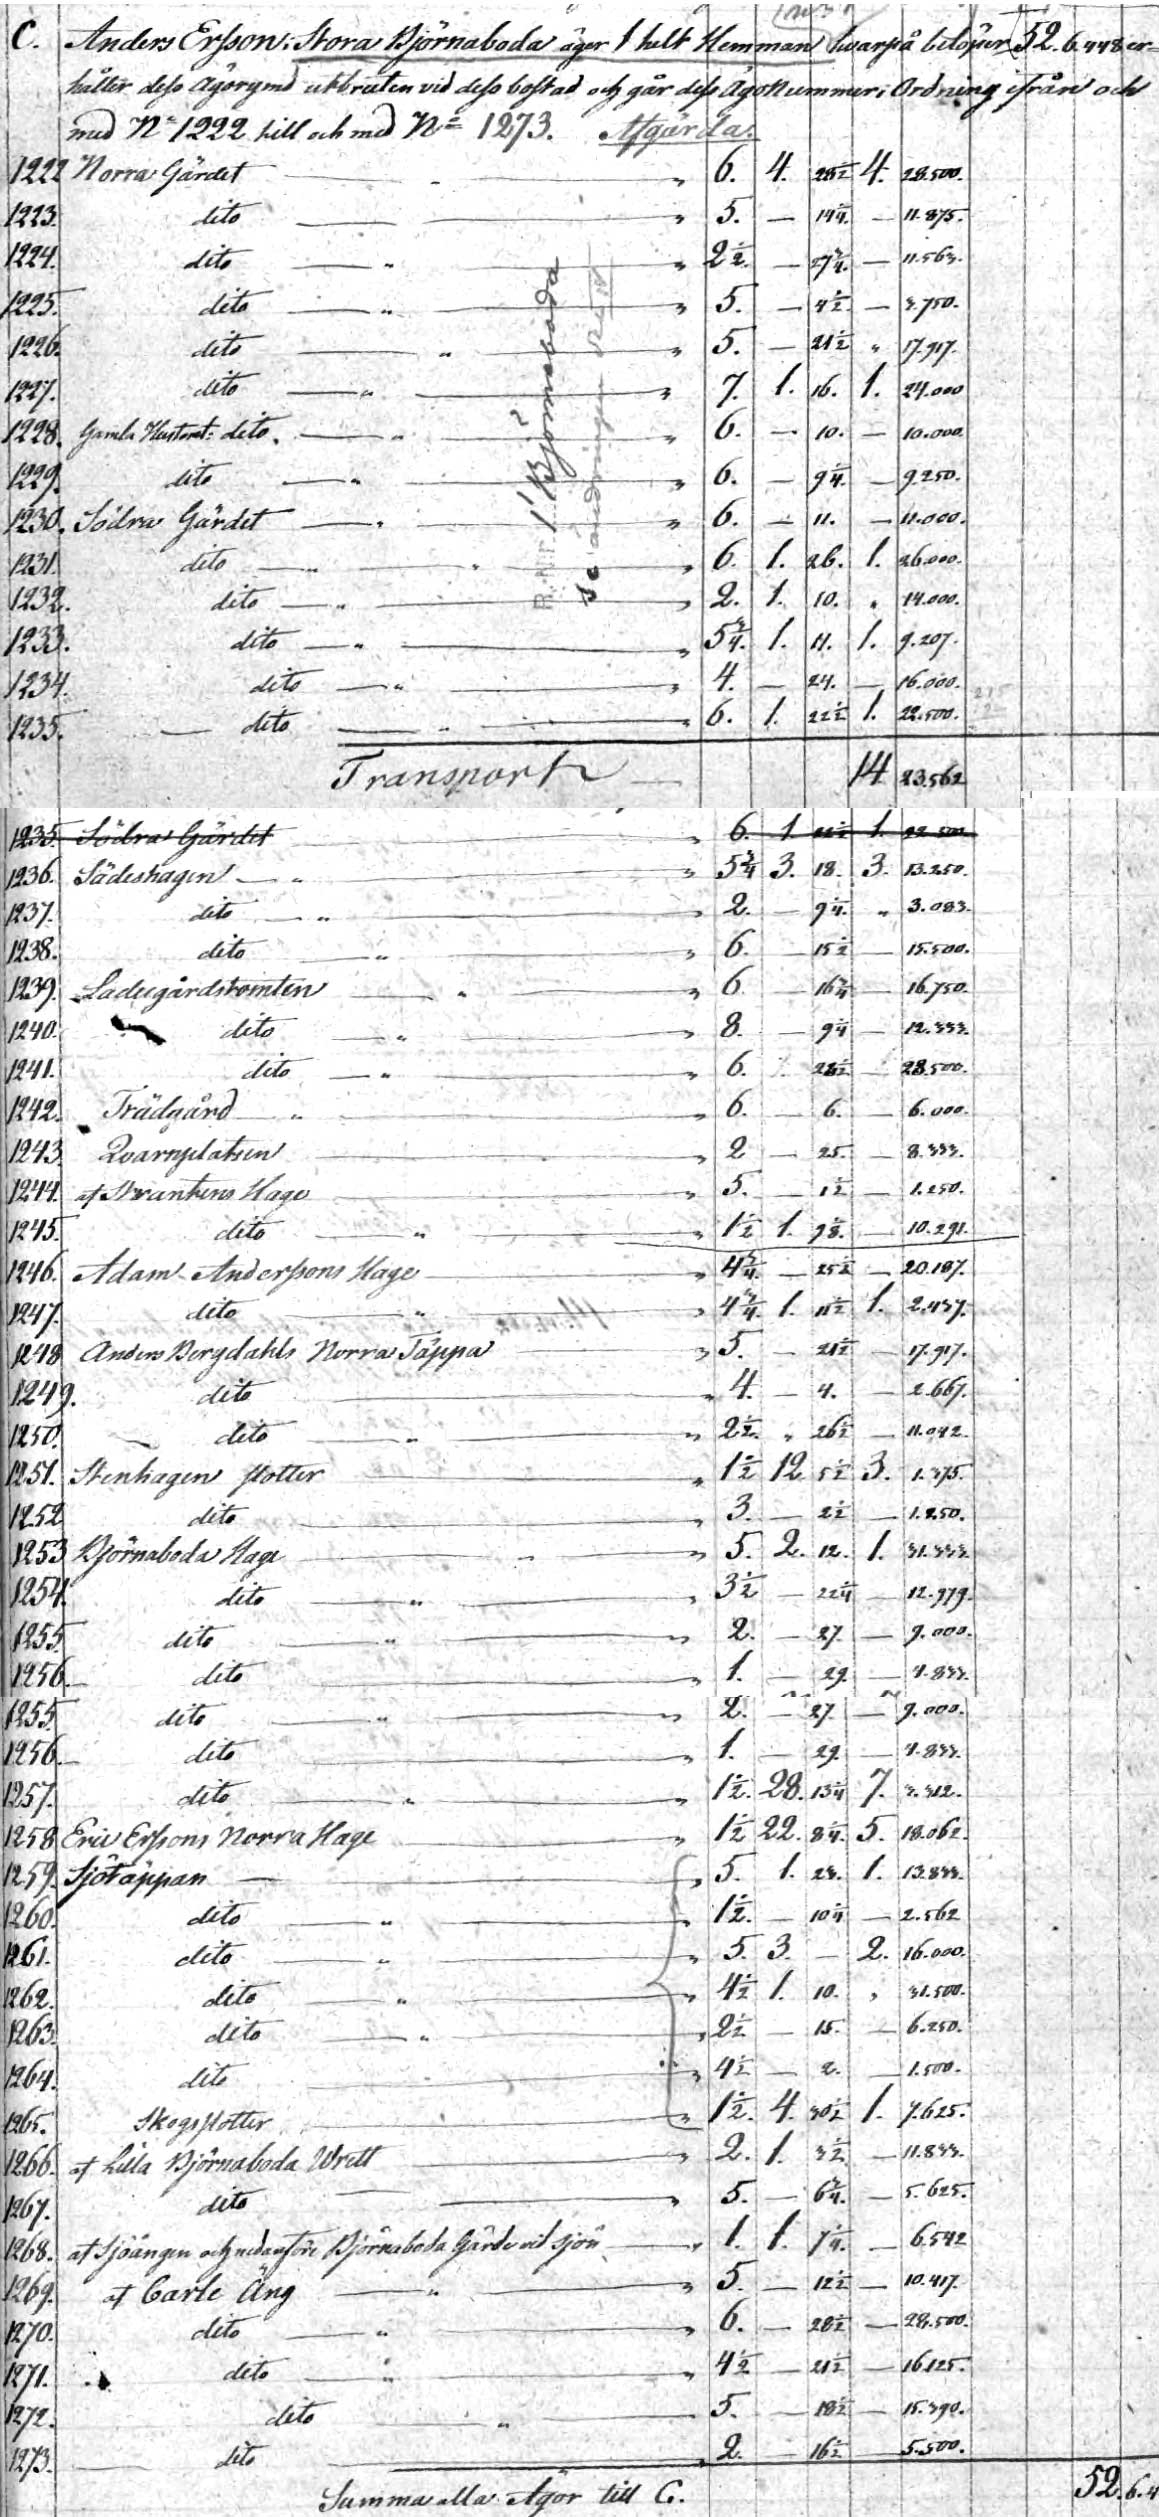 C. Anders Ersson i Stora Björnaboda äger 1 helt Hemman hvarpå belöper 52. 6.448 er=
håller dess Ägorymd utbruten vid dess bostad och går dess Ägo Nummer i Ordning ifrån och
med Nº 1222 till och med Nº 1273. Afgärda.
1222 Norra Gärdet — „ 6. 4. 28½ 4. 28.500.
1223. dito — „ 5. — 14¼. — 11.875.
1224. dito — „ 2½. — 27¾. — 11.563.
1225. dito — „ 5. — 4½. — 3.750.
1226. dito — „ 5. — 21½ „ 17.917.
1227. dito — „ 7. 1. 16. 1. 24.000
1228. Gamla Hustomt: dito. — „ 6. — 10. — 10.000.
1229. dito — „ 6. — 9¼. — 9.250.
1230. Södra Gärdet — „ 6. — 11. — 11.000.
1231. dito — „ 6. 1. 26. 1. 26.000.
1232. dito — „ 2. 1. 10. „ 14.000.
1233. dito — „ 5¾. 1. 11. 1. 9.207.
1234. dito — „ 4. — 24. — 16.000.
1235. dito — „ 6. 1. 22½ 1. 22.500.
Björnaboda
Transport — 14 23.562
1235. Södra Gärdet „ 6. 1. 22½ 1. 22.500.
1236. Sädeshagen — „ 5¾ 3. 18. 3. 13.250.
1237. dito — „ 2. — 9¼. „ 3.083.
1238. dito „ 6. — 15½ — 15.500.
1239. Ladugårdstomten — „ 6. — 16¾ — 16.750.
1240. dito — „ 8. — 9¼ — 12.333.
1241. dito — „ 6. 28½ 28.500.
1242. Trädgård — „ 6. — 6. — 6.000.
1243. Qvarnplatsen — „ 2 — 25. — 8.333.
1244. af Strantens Hage — „ 5. — 1½ — 1.250.
1245. dito — „ 1½ 1. — 10.291.
1246. Adam Anderssons Hage — „ 4¾. — 25½ — 20.187.
1247. dito — „ 4¾. 1. 11½ 1. 2.437.
1248 Anders Bergdahls Norra Täppa — „ 5. — 21½ — 17.917.
1249. dito — „ 4. — 4. — 2.667.
1250. dito — „ 2½. „ 26½ — 11.042.
1251. Stenhagen slotter — „ 1½ 12 5½ 3. 1.375.
1252 dito — „ 3. — 2½ — 1.250.
1253 Björnaboda Hage — „ 5. 2. 12. 1. 31.333.
1254. dito — „ 3½ — 22¼ — 12.979.
1255. dito — „ 2. — 27. — 9.000.
1256. dito — „ 1. — 29. — 4.833.
1255. dito — „ 2. — 27. — 9.000.
1256. dito — „ 1. — 29. — 4.833.
1257. dito — „ 1½. 28. 13¼ 7. 3.312.
1258 Eric Erssons Norra Hage — „ 1½ 22. 8¼. 5. 18.062.
1259. Sjötäppan — „ 5. 1. 23. 1. 13.833.
1260. dito — „ 1½. — 10¼ — 2.562
1261. dito — „ 5. 3. — 2. 16.000.
1262. dito — „ 4½ 1. 10. „ 31.500.
1263. dito — „ 2½ — 15. — 6.250.
1264. dito — „ 4½ — 2. — 1.500.
1265. Skogsslotter — „ 1½. 4. 30½ 1. 7.625.
1266. af Lilla Björnaboda Wrett — „ 2. 1. 3½ — 11.833.
1267. dito — „ 5. — 6¾. — 5.625.
1268. af Sjöängen och nedanföre Björnaboda Gärde vid sjön — „ 1. 1. 7¼. — 6.542
1269. af Carle Äng — „ 5. — 12½ — 10.417.
1270. dito — „ 6. — 28½ — 28.500.
1271. dito — „ 4½ — 21½ — 16.125.
1272. dito — „ 5. — 18½ — 15.390.
1273. dito — 2. — 16½ — 5.500.
Summa alla Ägor till C. 52. 6.4